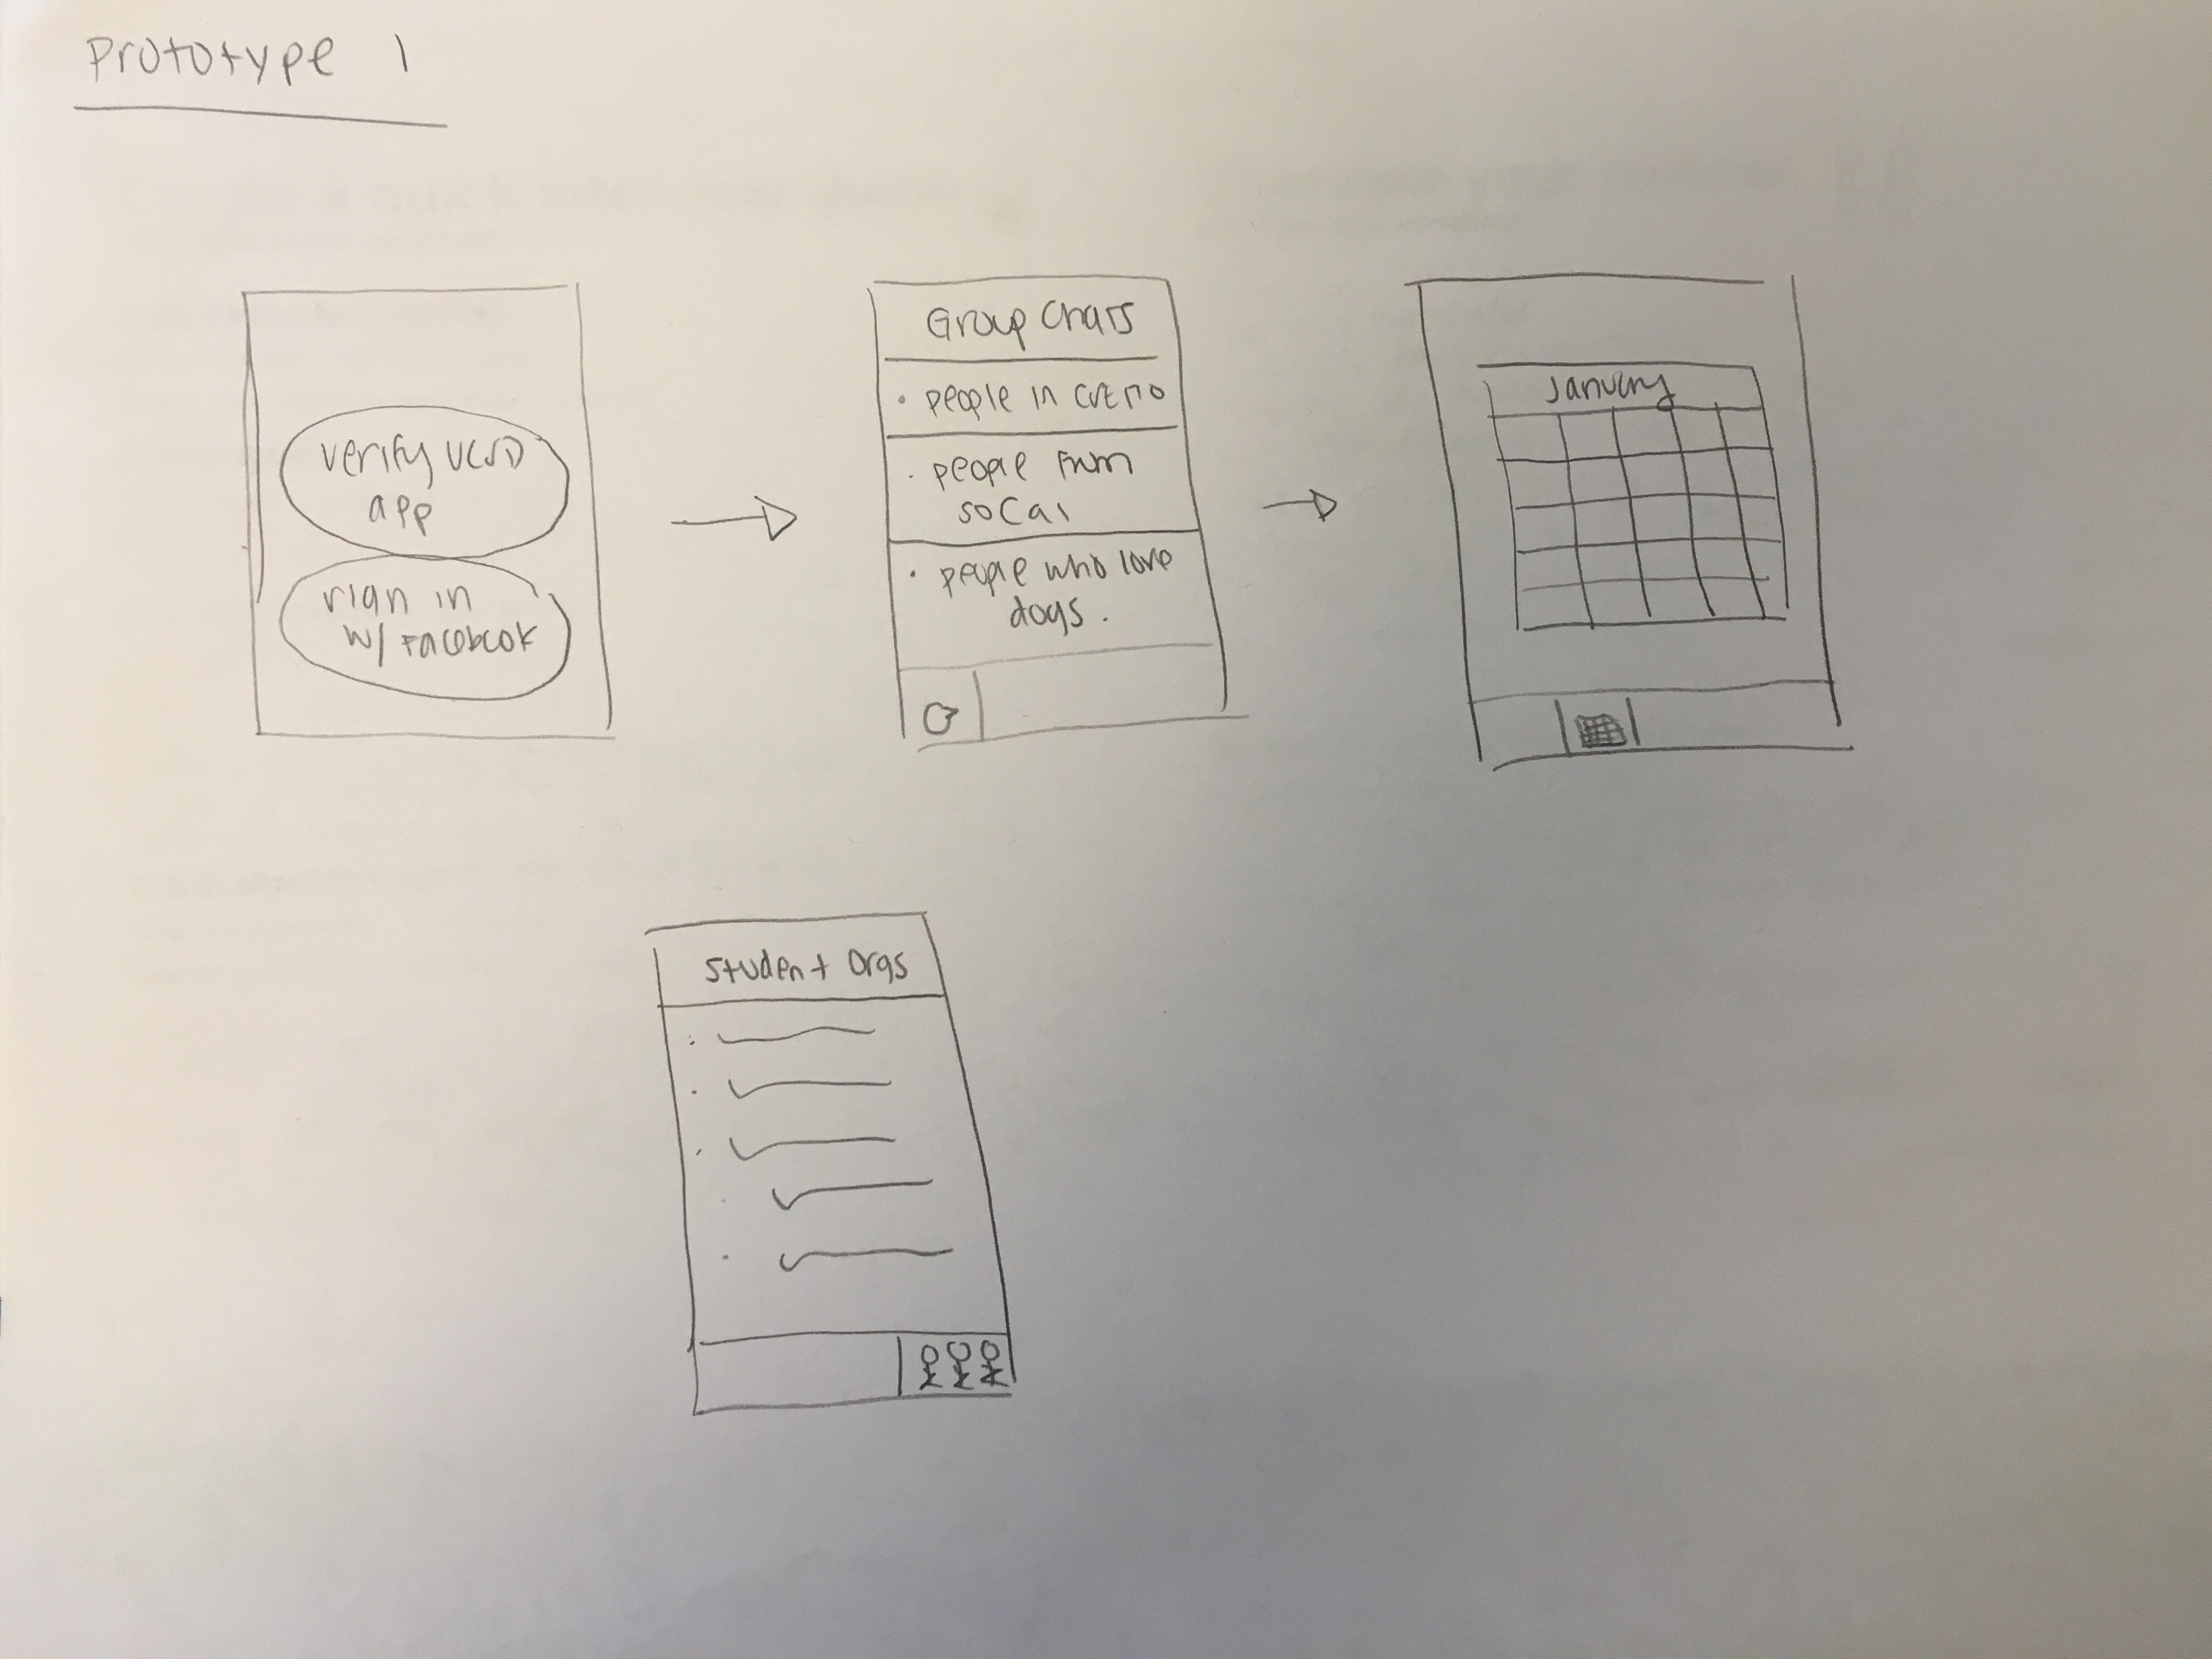 Prototype 1
verify UCSD
app
sign in
w/ Facebook
Group Chats
· people in
· people from
SoCal
· people who love
dogs.
January
Student Orgs